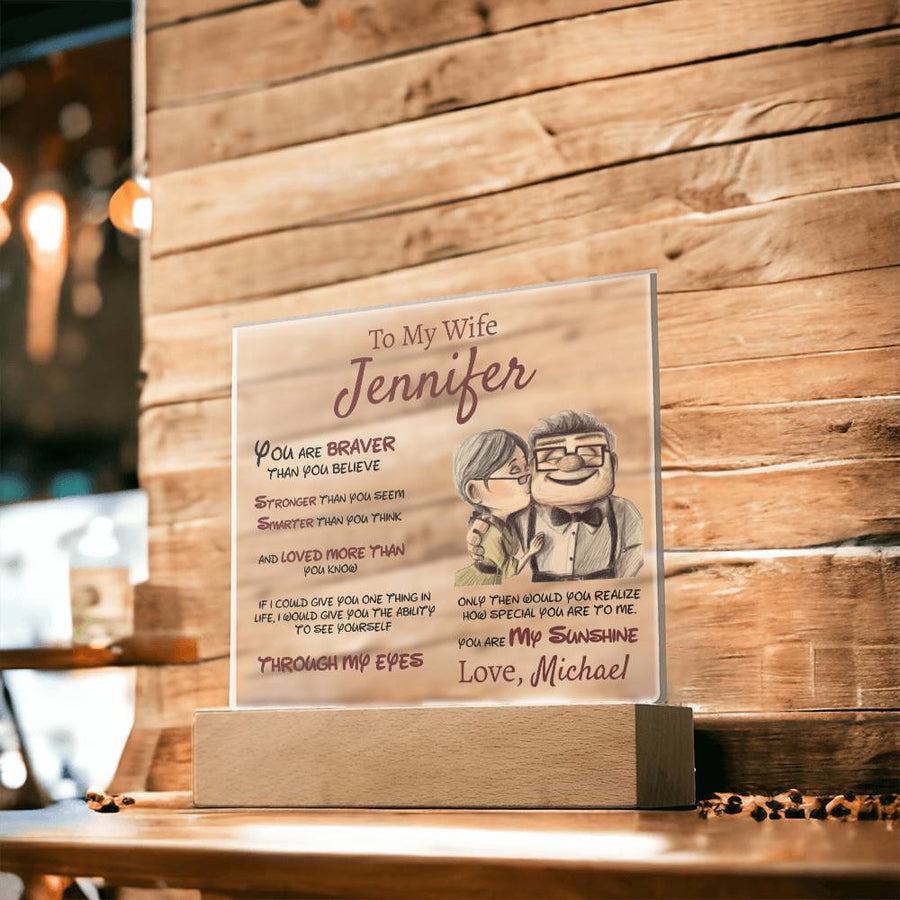 To My Wife
Jennifer
YOU ARE BRAVER
THAN YOU BELIEVE
STRONGER THAN YOU SEEM
SMARTER THAN YOU THINK
AND LOVED MORE THAN
YOU KNOW
IF I COULD GIVE YOU ONE THING IN
LIFE, I WOULD GIVE YOU THE ABILITY
TO SEE YOURSELF
THROUGH MY EYES
ONLY THEN WOULD YOU REALIZE
HOW SPECIAL YOU ARE TO ME.
YOU ARE MY SUNSHINE
Love, Michael